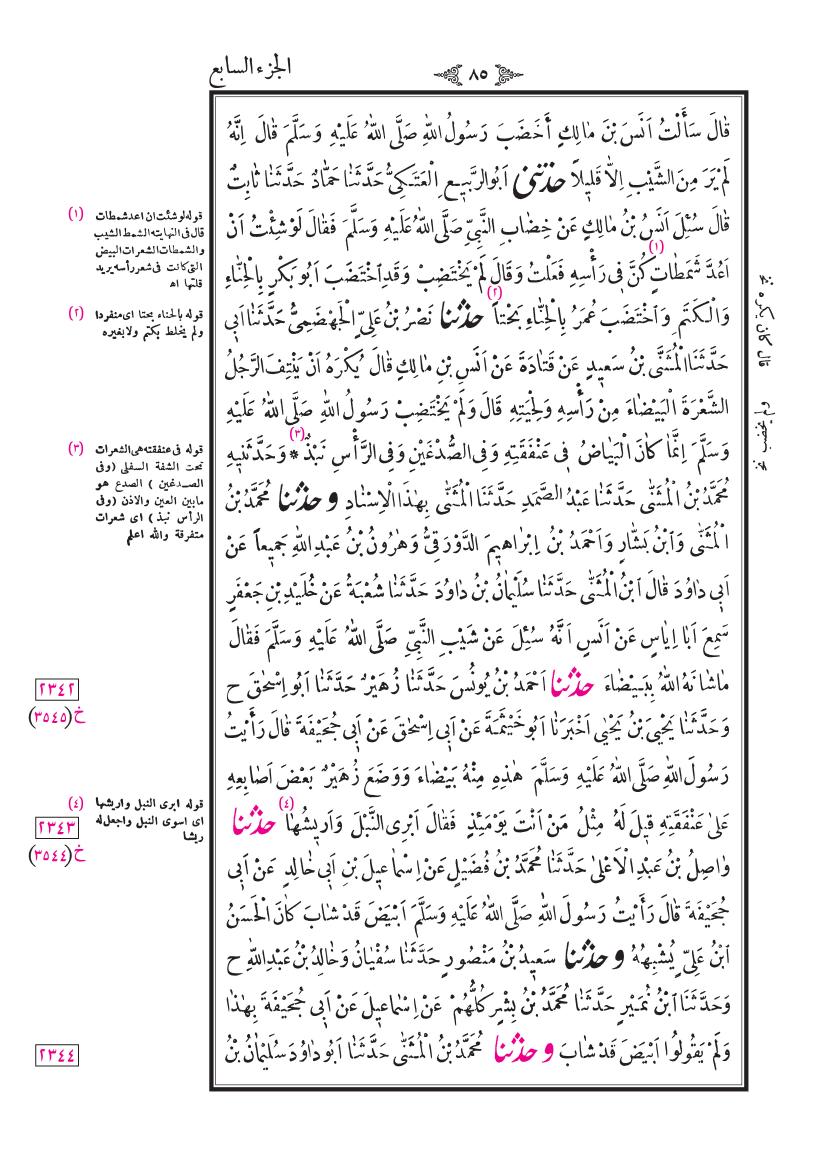 الجزء السابع
٨٥
قَالَ سَأَلْتُ اَنَسَ بْنَ مَالِكٍ أَخَضَبَ رَسُولُ اللّٰهِ صَلَّى اللّٰهُ عَلَيْهِ وَسَلَّمَ قَالَ اِنَّهُ
لَمْ يَرَ مِنَ الشَّيْبِ اِلَّا قَلِيلاً حَدَّثَنِي اَبُو الرَّبِيعِ الْعَتَكِيُّ حَدَّثَنَا حَمَّادٌ حَدَّثَنَا ثَابِتٌ
قَالَ سُئِلَ اَنَسُ بْنُ مَالِكٍ عَنْ خِضَابِ النَّبِيِّ صَلَّى اللّٰهُ عَلَيْهِ وَسَلَّمَ فَقَالَ لَوْ شِئْتُ اَنْ
اَعُدَّ شَمَطَاتٍ (١) كُنَّ فِي رَأْسِهِ فَعَلْتُ وَقَالَ لَمْ يَخْتَضِبْ وَقَدِ اخْتَضَبَ اَبُو بَكْرٍ بِالْحِنَّاءِ
وَالْكَتَمِ وَاخْتَضَبَ عُمَرُ بِالْحِنَّاءِ بَحْتاً (٢) حَدَّثَنَا نَصْرُ بْنُ عَلِيٍّ الْجَهْضَمِيُّ حَدَّثَنَا اَبِي
حَدَّثَنَا الْمُثَنَّى بْنُ سَعِيدٍ عَنْ قَتَادَةَ عَنْ اَنَسِ بْنِ مَالِكٍ قَالَ يُكْرَهُ اَنْ يَنْتِفَ الرَّجُلُ
الشَّعْرَةَ الْبَيْضَاءَ مِنْ رَأْسِهِ وَلِحْيَتِهِ قَالَ وَلَمْ يَخْتَضِبْ رَسُولُ اللّٰهِ صَلَّى اللّٰهُ عَلَيْهِ
وَسَلَّمَ اِنَّمَا كَانَ الْبَيَاضُ فِي عَنْفَقَتِهِ وَفِي الصُّدْغَيْنِ وَفِي الرَّأْسِ نَبْذٌ (٣) * وَحَدَّثَنِيهِ
مُحَمَّدُ بْنُ الْمُثَنَّى حَدَّثَنَا عَبْدُ الصَّمَدِ حَدَّثَنَا الْمُثَنَّى بِهٰذَا الْاِسْنَادِ وَحَدَّثَنَا مُحَمَّدُ بْنُ
الْمُثَنَّى وَابْنُ بَشَّارٍ وَاَحْمَدُ بْنُ اِبْرَاهِيمَ الدَّوْرَقِيُّ وَهٰرُونُ بْنُ عَبْدِ اللّٰهِ جَمِيعاً عَنْ
اَبِي دَاوُدَ قَالَ ابْنُ الْمُثَنَّى حَدَّثَنَا سُلَيْمَانُ بْنُ دَاوُدَ حَدَّثَنَا شُعْبَةُ عَنْ خُلَيْدِ بْنِ جَعْفَرٍ
سَمِعَ اَبَا اِيَاسٍ عَنْ اَنَسٍ اَنَّهُ سُئِلَ عَنْ شَيْبِ النَّبِيِّ صَلَّى اللّٰهُ عَلَيْهِ وَسَلَّمَ فَقَالَ
مَا شَانَهُ اللّٰهُ بِبَيْضَاءَ حَدَّثَنَا اَحْمَدُ بْنُ يُونُسَ حَدَّثَنَا زُهَيْرٌ حَدَّثَنَا اَبُو اِسْحٰقَ ح
وَحَدَّثَنَا يَحْيَى بْنُ يَحْيٰى اَخْبَرَنَا اَبُو خَيْثَمَةَ عَنْ اَبِي اِسْحٰقَ عَنْ اَبِي جُحَيْفَةَ قَالَ رَأَيْتُ
رَسُولَ اللّٰهِ صَلَّى اللّٰهُ عَلَيْهِ وَسَلَّمَ هٰذِهِ مِنْهُ بَيْضَاءَ وَوَضَعَ زُهَيْرٌ بَعْضَ اَصَابِعِهِ
عَلٰى عَنْفَقَتِهِ قِيلَ لَهُ مِثْلُ مَنْ اَنْتَ يَوْمَئِذٍ فَقَالَ اَبْرِي النَّبْلَ وَاَرِيشُهَا (٤) حَدَّثَنَا
وَاصِلُ بْنُ عَبْدِ الْاَعْلٰى حَدَّثَنَا مُحَمَّدُ بْنُ فُضَيْلٍ عَنْ اِسْمَاعِيلَ بْنِ اَبِي خَالِدٍ عَنْ اَبِي
جُحَيْفَةَ قَالَ رَأَيْتُ رَسُولَ اللّٰهِ صَلَّى اللّٰهُ عَلَيْهِ وَسَلَّمَ اَبْيَضَ قَدْ شَابَ كَانَ الْحَسَنُ
ابْنُ عَلِيٍّ يُشْبِهُهُ وَحَدَّثَنَا سَعِيدُ بْنُ مَنْصُورٍ حَدَّثَنَا سُفْيَانُ وَخَالِدُ بْنُ عَبْدِ اللّٰهِ ح
وَحَدَّثَنَا ابْنُ نُمَيْرٍ حَدَّثَنَا مُحَمَّدُ بْنُ بِشْرٍ كُلُّهُمْ عَنْ اِسْمَاعِيلَ عَنْ اَبِي جُحَيْفَةَ بِهٰذَا
وَلَمْ يَقُولُوا اَبْيَضَ قَدْ شَابَ وَحَدَّثَنَا مُحَمَّدُ بْنُ الْمُثَنَّى حَدَّثَنَا اَبُو دَاوُدَ سُلَيْمَانُ بْنُ
(١) قوله لو شئت ان اعد شمطات
قال في النهايته الشمط الشيب
والشمطات الشعرات البيض
التى كانت في شعر رأسه يريد
قلتها اه
(٢) قوله بالحناء بحتا اى منفردا
ولم يخلط بكتم ولا بغيره
(٣) قوله في عنفقته هى الشعرات
تحت الشفة السفلى (وفى
الصدغين) الصدغ هو
مابين العين والاذن (وفى
الرأس نبذ) اى شعرات
متفرقة والله اعلم
٢٣٤٢
خ(٣٥٤٥)
(٤) قوله ابرى النبل واريشها
اى اسوى النبل واجعل له
ريشا
٢٣٤٣
خ(٣٥٤٤)
٢٣٤٤
قال كان يكره نخ